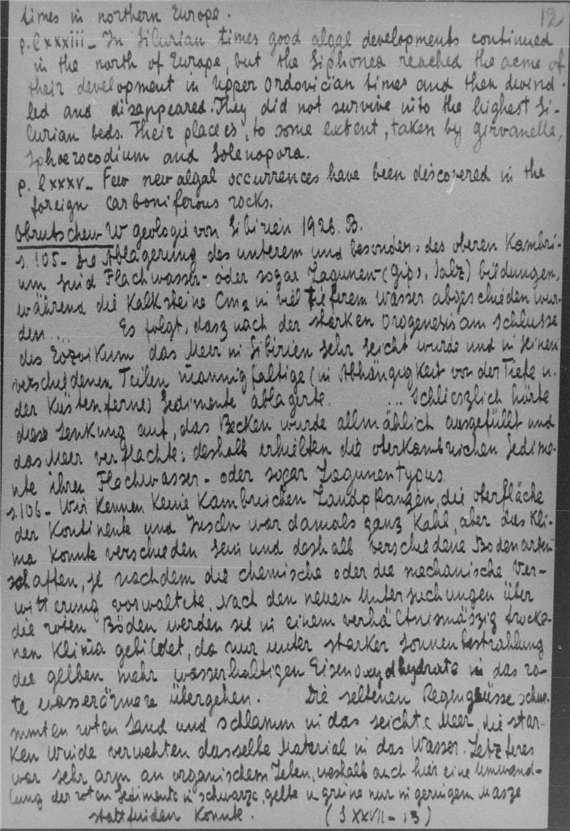 times in northern Europe. 12
p. lxxxiii_ In Silurian times good algal developments continued
in the north of Europe, but the Siphonea reached the acme of
their development in Upper Ordovician times and then dwind-
led and disappeared. They did not survive into the highest Si-
lurian beds. Their places, to some extent, taken by girvanella,
Sphoerocodium and Solenopora.
p. lxxxv_ Few new algal occurrences have been discovered in the
foreign carboniferous rocks.
Obrutschew W geologie von Sibirien 1926. B.
s. 105_ Die Ablagerung des unterem und besonders des oberen Kambri-
um sind Flachwasser- oder sogar Lagunen-(gips, Salz) bildungen,
während die Kalksteine Cm2 in viel tieferem Wasser abgeschieden wur-
den ... Es folgt, dasz nach der starken Orogenesis am Schlusse
des Eozoikum das Meer in Sibirien sehr seicht wurde und in seinen
verschiedenen Teilen mannigfaltige (in Abhängigkeit von der Tiefe u.
der Küstenferne) Sedimente ablagerte. ... Schlieszlich hörte
diese Senkung auf, das Becken wurde allmählich ausgefüllt und
das Meer verflachte; deshalb erhielten die oberkambrischen Sedime-
nte ihren Flachwasser- oder sogar Lagunentypus.
s. 106_ Wir kennen keine Kambrischen Landpflanzen, die oberfläche
der Kontinente und Inseln war damals ganz kahl, aber das Kli-
ma konnte verschieden sein und deshalb verschiedene Bodenarten
schaffen, je nachdem die chemische oder die mechanische Ver-
witterung vorwaltete. Nach den neuen Untersuchungen über
die roten Böden werden sie in einem verhältnismäszig trocke-
nen Klima gebildet, da nur unter starker Sonnenbestrahlung
die gelben mehr wasserhaltigen Eisenoxydhydrate in das ro-
te wasserärmere übergehen. Die seltenen Regengüsse schwe-
mmten roten Sand und Schlamm in das seichte Meer, die star-
ken Winde verwehten dasselbe Material in das Wasser. Letzteres
war sehr arm an organischem Leben, weshalb auch hier eine Umwand-
lung der roten Sedimente in schwarze, gelbe u. grüne nur in geringem Masze
stattfinden konnte. (S XXVII - 13)